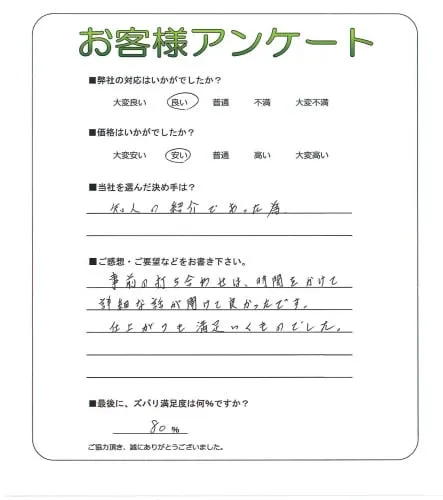 お客様アンケート
■弊社の対応はいかがでしたか?
大変良い 良い 普通 不満 大変不満
■価格はいかがでしたか?
大変安い 安い 普通 高い 大変高い
■当社を選んだ決め手は?
知人の紹介であった為
■ご感想・ご要望などをお書き下さい。
事前の打ち合わせは、時間をかけて
詳細な話が聞けて良かったです。
仕上がりも満足いくものでした。
■最後に、ズバリ満足度は何%ですか?
80 %
ご協力頂き、誠にありがとうございました。